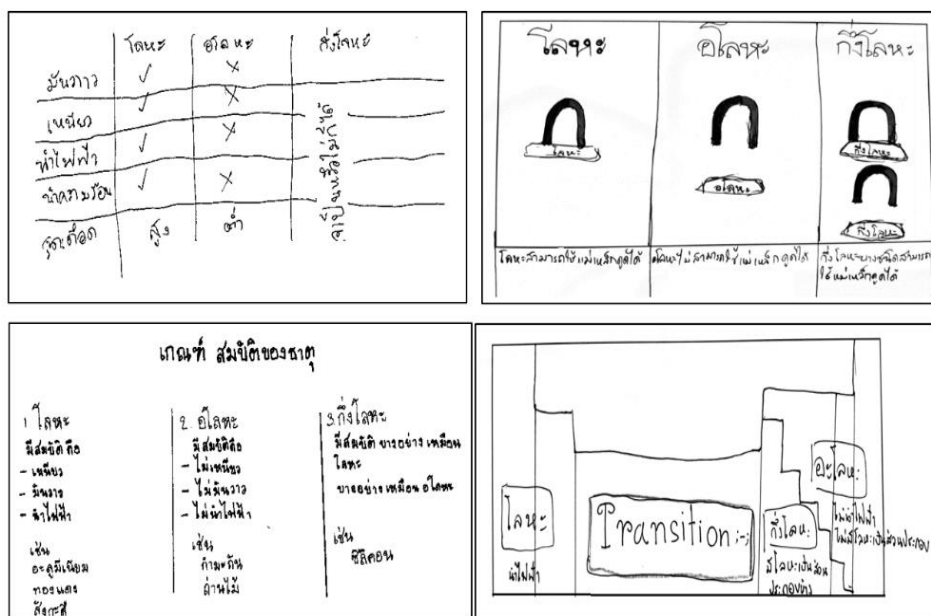 โลหะ อโลหะ กึ่งโลหะ
มันวาว ✓ ✗
เหนียว ✓ ✗
นำไฟฟ้า ✓ ✗
นำความร้อน ✓ ✗
จุดเดือด สูง ต่ำ
โลหะ อโลหะ กึ่งโลหะ
โลหะ
อโลหะ
กึ่งโลหะ
กึ่งโลหะ
โลหะสามารถใช้แม่เหล็กดูดได้
อโลหะไม่สามารถใช้แม่เหล็กดูดได้
กึ่งโลหะบางชนิดสามารถ
ใช้แม่เหล็กดูดได้
เกณฑ์ สมบัติของธาตุ
1. โลหะ
มีสมบัติ คือ
- เหนียว
- มันวาว
- นำไฟฟ้า
เช่น
อะลูมิเนียม
ทองแดง
สังกะสี
2. อโลหะ
มีสมบัติคือ
- ไม่เหนียว
- ไม่มันวาว
- ไม่นำไฟฟ้า
เช่น
กำมะถัน
ถ่านไม้
3. กึ่งโลหะ
มีสมบัติ บางอย่าง เหมือน
โลหะ
บางอย่าง เหมือน อโลหะ
เช่น
ซิลิคอน
โลหะ
นำไฟฟ้า
Transition :-;
กึ่งโลหะ
มีโลหะเป็นส่วน
ประกอบบ้าง
อะโลหะ
ไม่นำไฟฟ้า
ไม่มีโลหะเป็นส่วนประกอบ